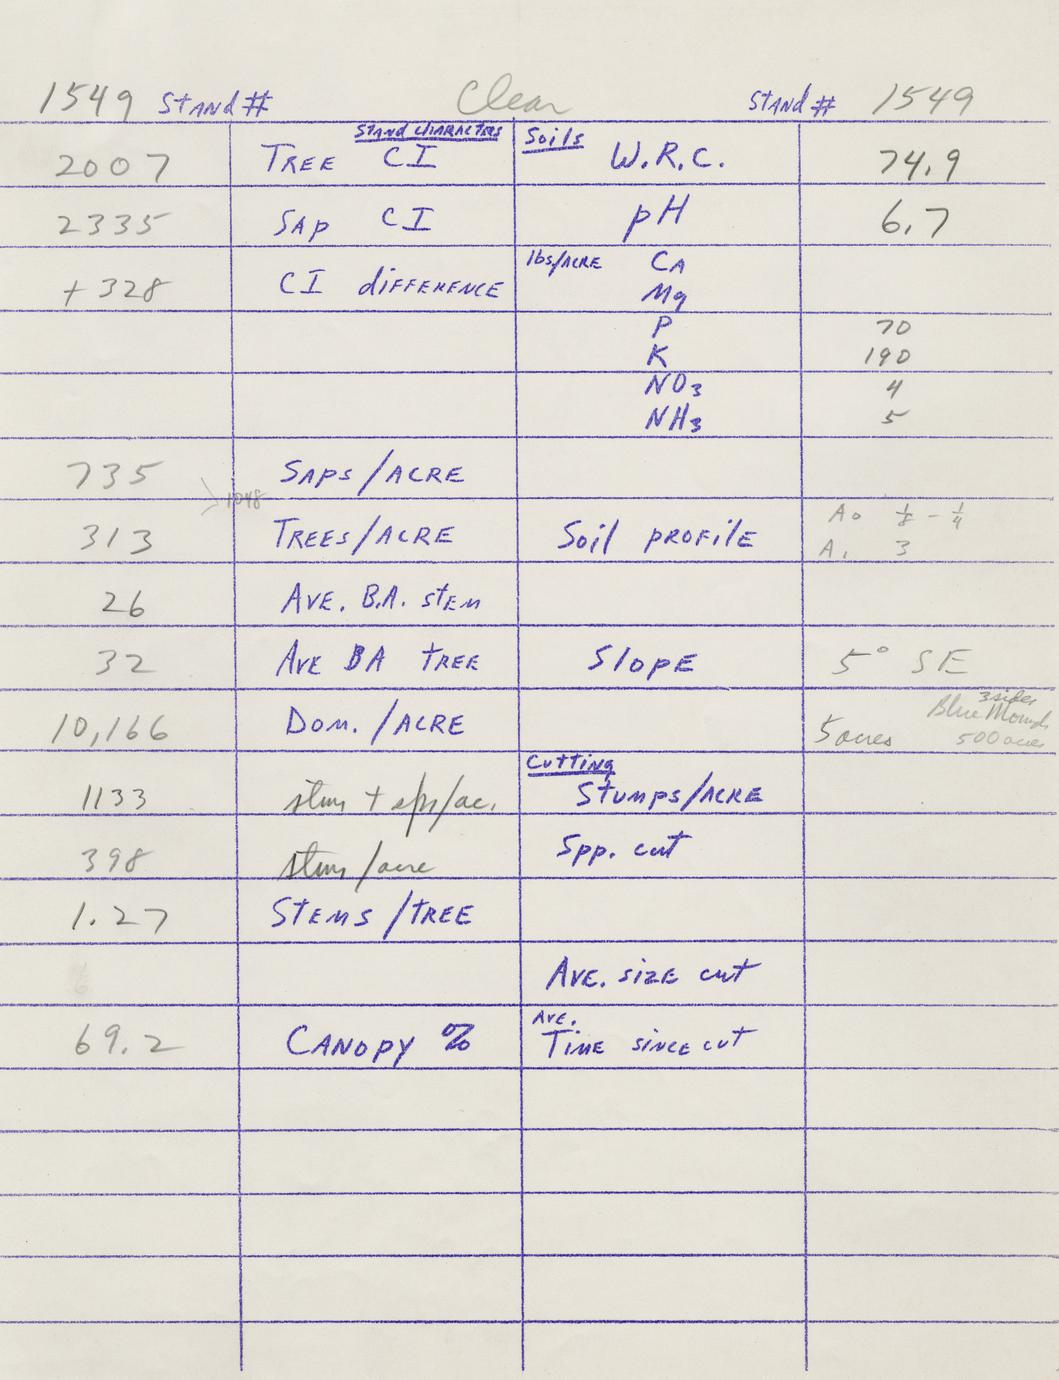 1549 Stand # Clear Stand # 1549
Stand Characters Soils
2007 Tree CI W.R.C. 74.9
2335 Sap CI pH 6.7
lbs/Acre Ca
+328 CI difference Mg
P 70
K 190
NO3 4
NH3 5
735 Saps/Acre
>1048
A0 1/8 - 1/4
313 Trees/Acre Soil profile
A1 3
26 Ave. B.A. stem
32 Ave BA tree Slope 5° SE
3 sides
Blue Mounds
10,166 Dom./Acre 5 acres 500 acres
Cutting
1133 stems + sps/ac. Stumps/Acre
398 stems/acre Spp. cut
1.27 Stems/tree
Ave. size cut
Ave.
69.2 Canopy % Time since cut